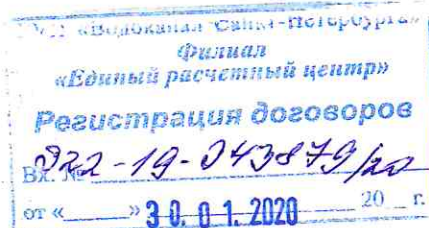 «Водоканал Санкт-Петербурга»
Филиал
«Единый расчетный центр»
Регистрация договоров
Вх. № 322-19-043879/20
от «____» 30. 01. 2020 ____ 20 __ г.